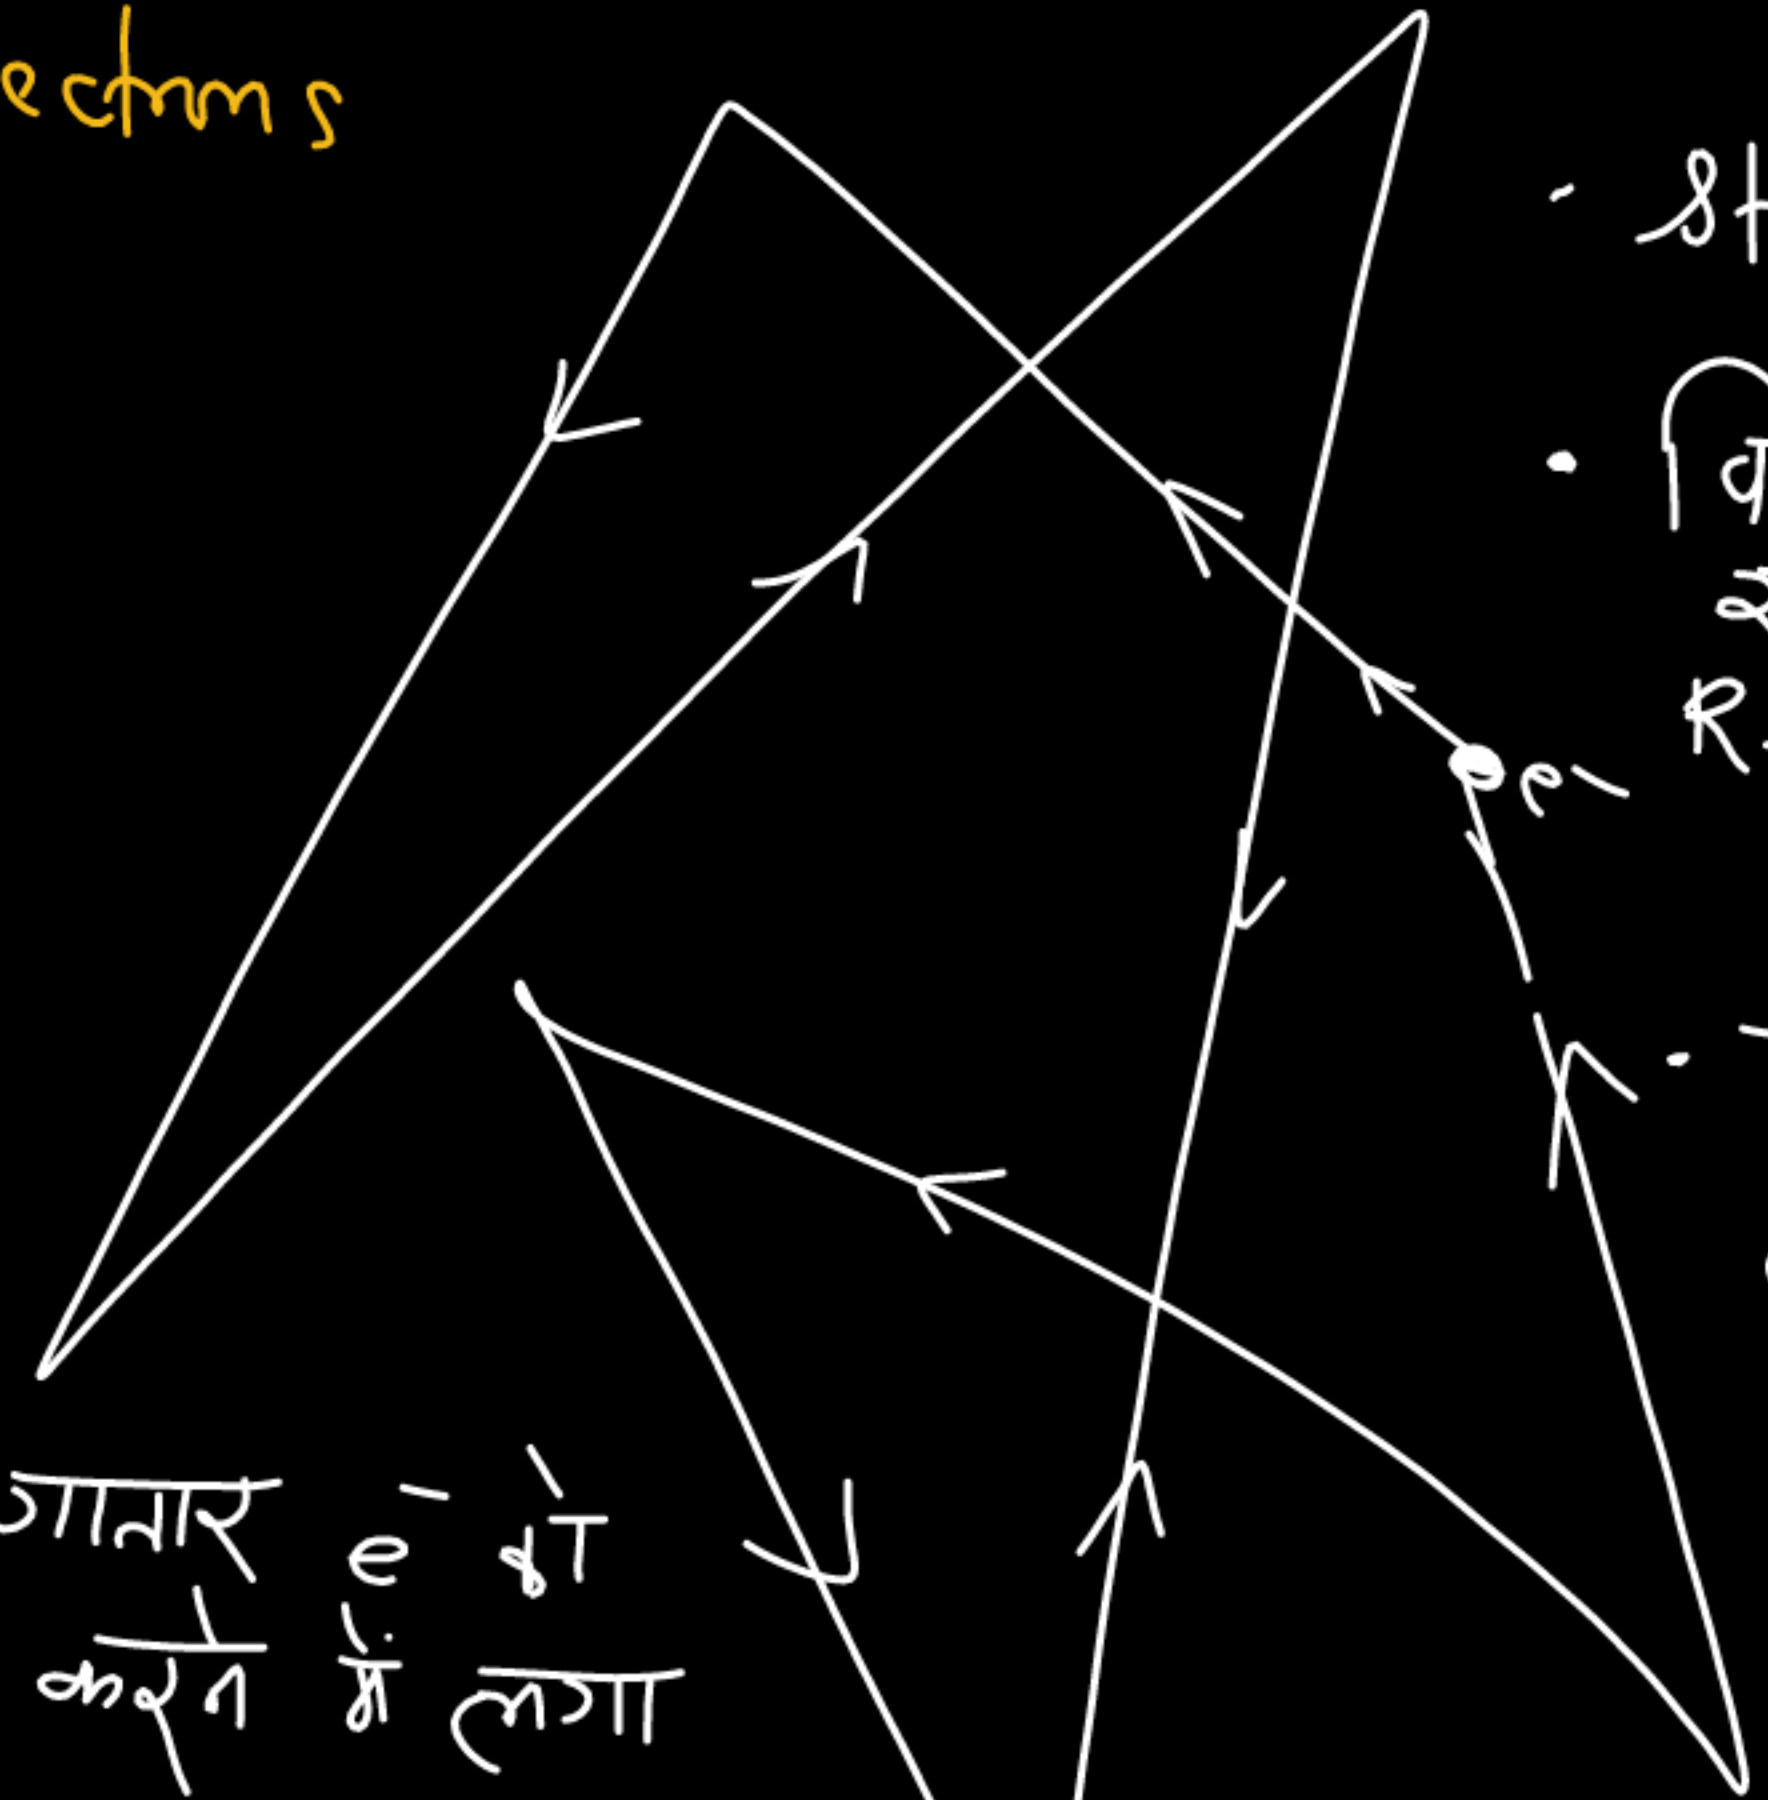 ectrons
St
R.
e-
गातार e- को
करने में लगा